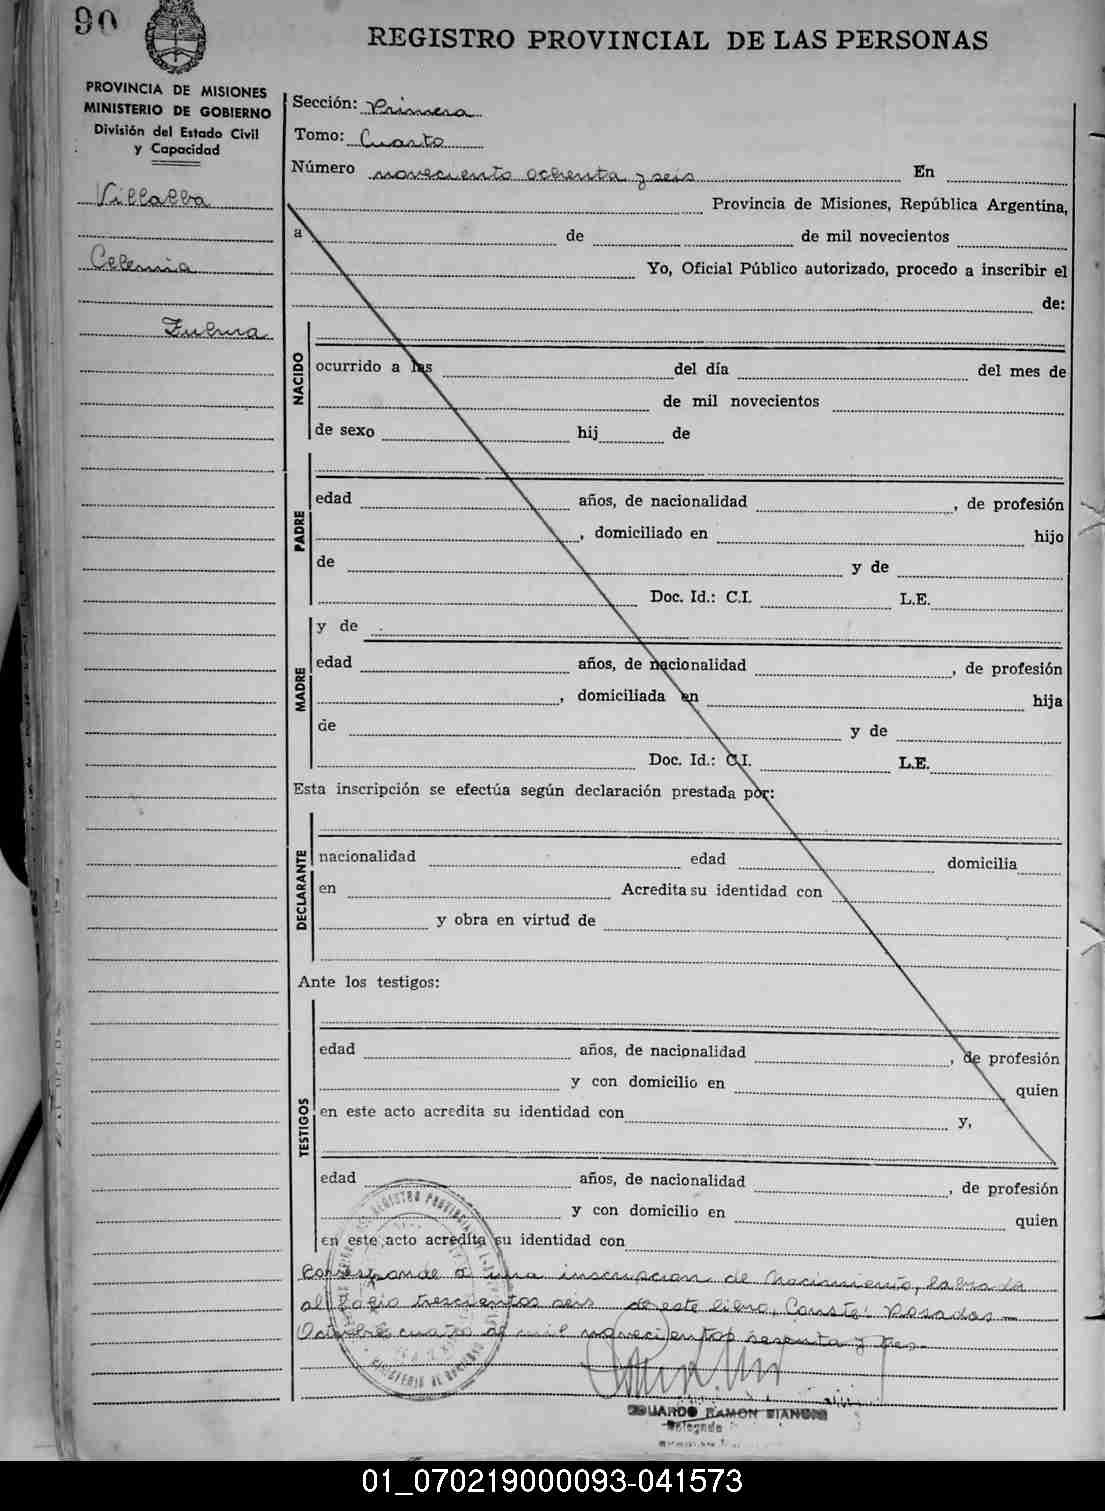 90
REGISTRO PROVINCIAL DE LAS PERSONAS
PROVINCIA DE MISIONES
MINISTERIO DE GOBIERNO
División del Estado Civil
y Capacidad
Villalba
Celemia
Zulma
Sección: Primera
Tomo: Cuarto
Número noveciento ochenta y seis En
Provincia de Misiones, República Argentina,
a de de mil novecientos
Yo, Oficial Público autorizado, procedo a inscribir el
de:
NACIDO
ocurrido a las del día del mes de
de mil novecientos
de sexo hij de
PADRE
edad años, de nacionalidad , de profesión
, domiciliado en hijo
de y de
Doc. Id.: C.I. L.E.
MADRE
y de
edad años, de nacionalidad , de profesión
, domiciliada en hija
de y de
Doc. Id.: C.I. L.E.
Esta inscripción se efectúa según declaración prestada por:
DECLARANTE
nacionalidad edad domicilia
en Acredita su identidad con
y obra en virtud de
Ante los testigos:
TESTIGOS
edad años, de nacionalidad , de profesión
y con domicilio en quien
en este acto acredita su identidad con y,
edad años, de nacionalidad , de profesión
y con domicilio en quien
en este acto acredita su identidad con
Corresponde a una inscripcion de Nacimiento, labrada
al folio trescientos seis de este libro, Conste: Posadas
Octubre cuatro de mil novecientos sesenta y tres.
REGISTRO PROVINCIAL
MINISTERIO DE GOBIERNO
EDUARDO RAMON BIANCHI
Delegado
01_070219000093-041573